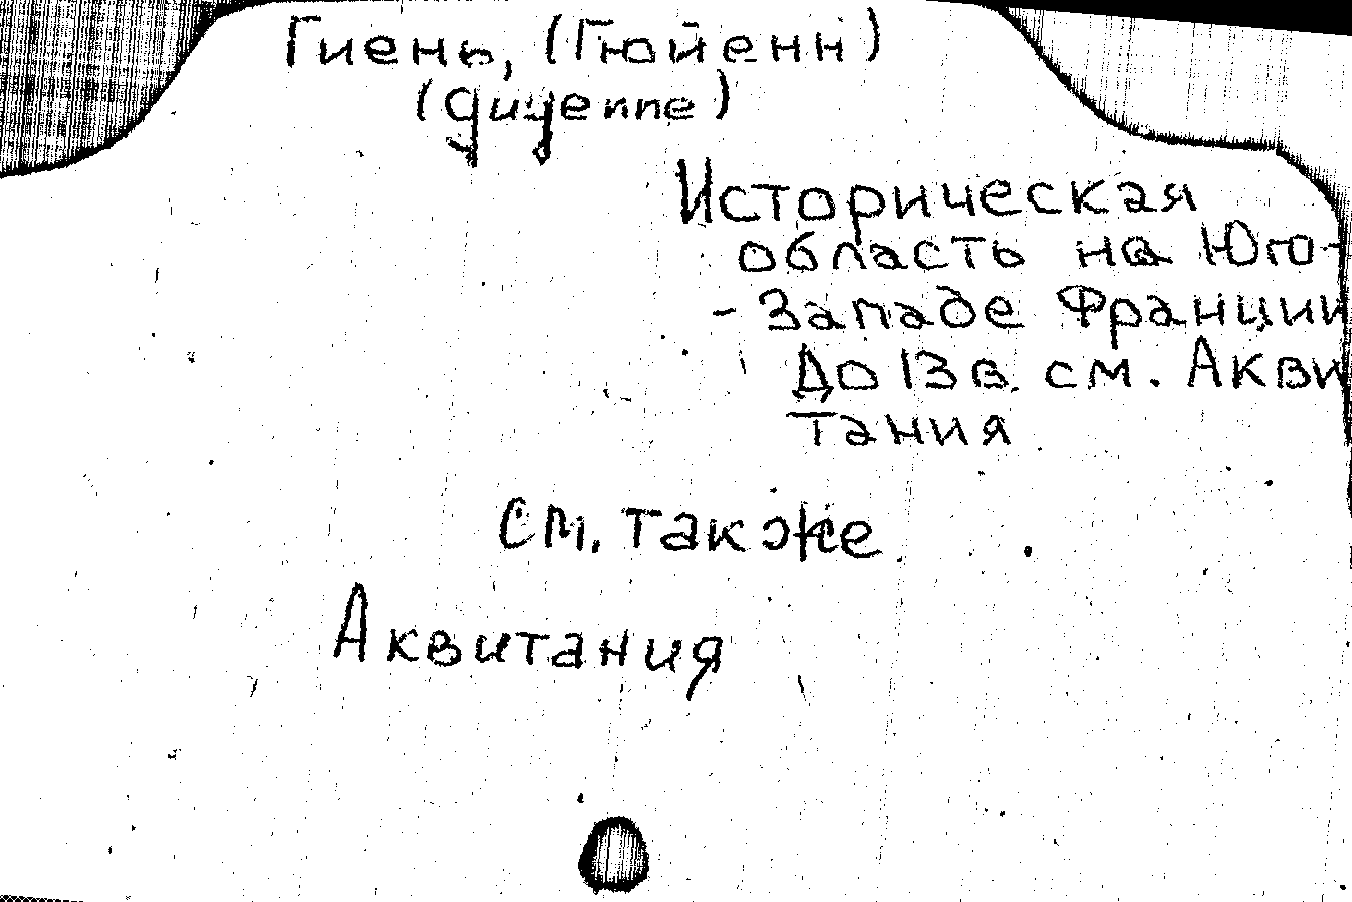 Гиень, (Гюйенн)
(guyenne)
Историческая
область на Юго-
- Западе Франции
До 13 в. см. Акви
тания
см. также
Аквитания